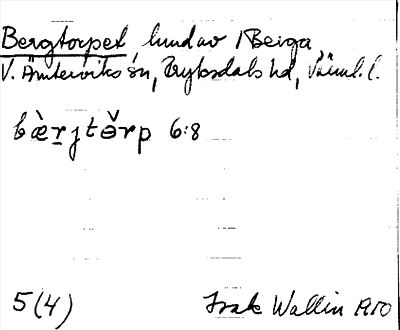 Bergtorpet, lund av /Berga,
V. Ämterviks sn, Fryksdals hd, Värml. l.
bæ̀rjtə̌rp 6:8
5(4) Isak Wallin 1910